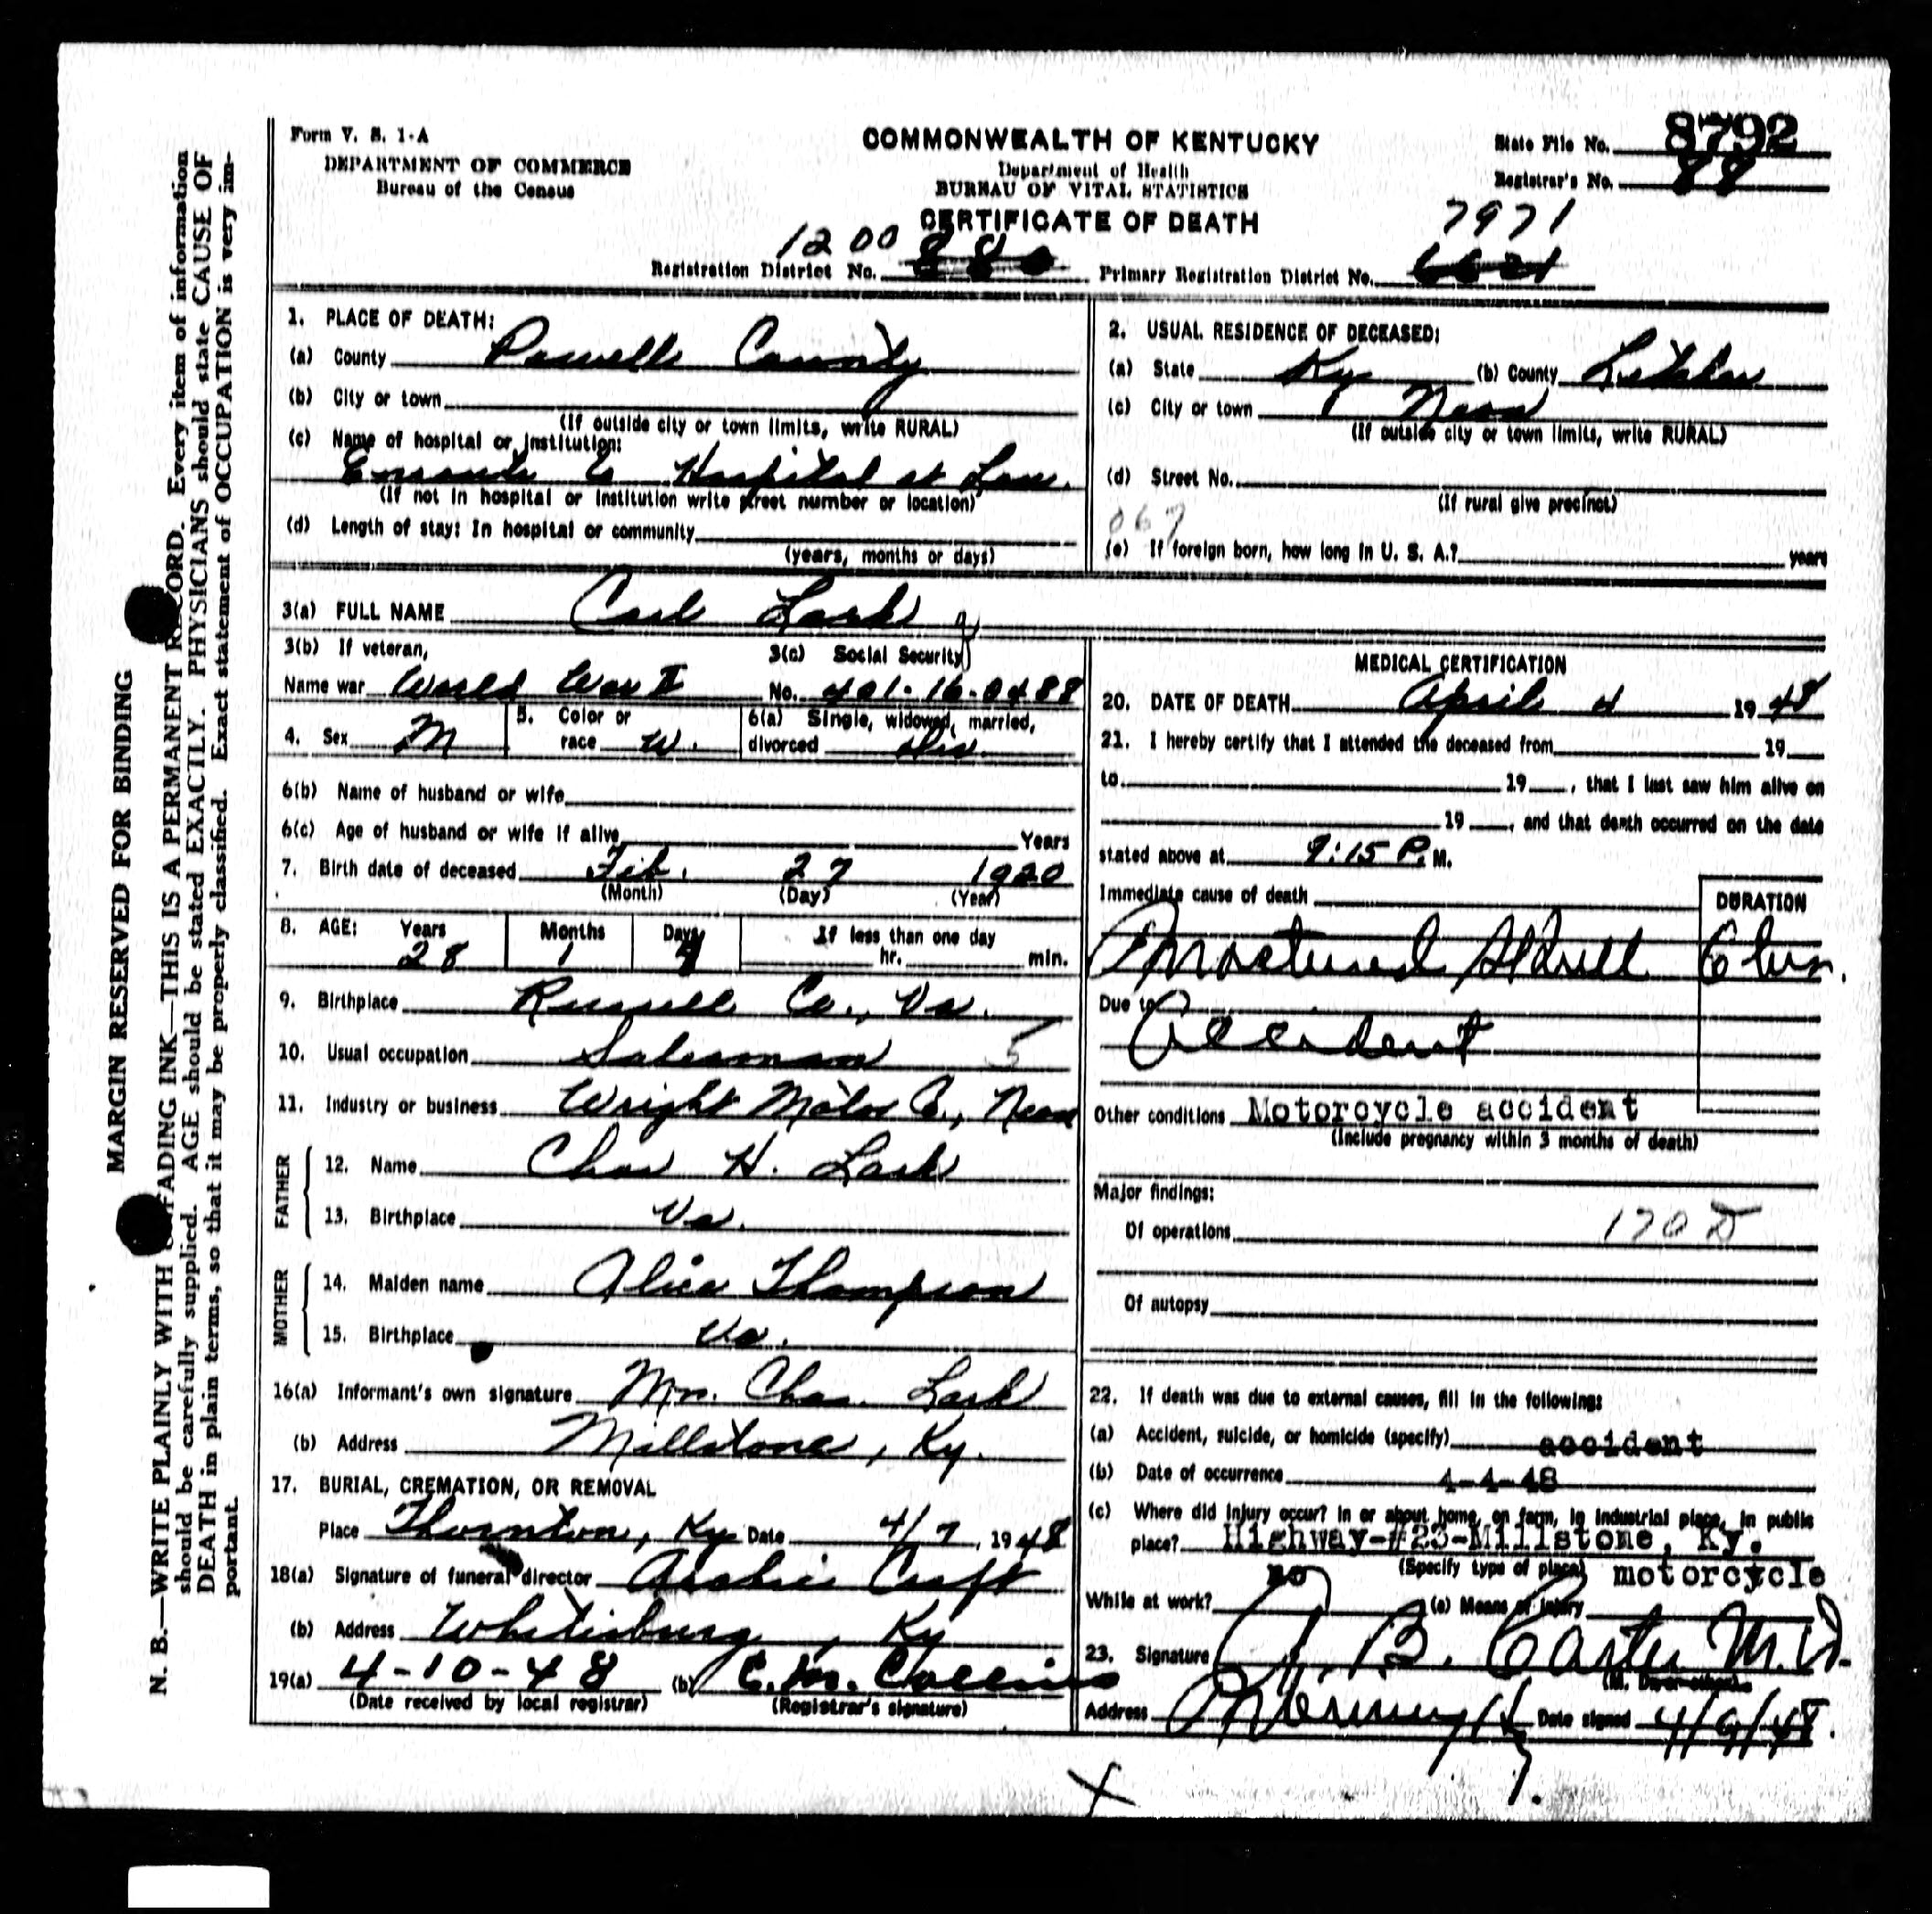 Form V. S. 1-A
DEPARTMENT OF COMMERCE
Bureau of the Census
COMMONWEALTH OF KENTUCKY
Department of Health
BUREAU OF VITAL STATISTICS
CERTIFICATE OF DEATH
State File No. 8792
Registrar's No. 88
1200 7971
Registration District No. 880 Primary Registration District No. 6621
MARGIN RESERVED FOR BINDING
N. B.—WRITE PLAINLY WITH UNFADING INK—THIS IS A PERMANENT RECORD. Every item of information
should be carefully supplied. AGE should be stated EXACTLY. PHYSICIANS should state CAUSE OF
DEATH in plain terms, so that it may be properly classified. Exact statement of OCCUPATION is very im-
portant.
1. PLACE OF DEATH:
(a) County Powell County
(b) City or town
(If outside city or town limits, write RURAL)
(c) Name of hospital or institution:
Enroute to Hospital at Lex.
(If not in hospital or institution write street number or location)
(d) Length of stay: In hospital or community
(years, months or days)
2. USUAL RESIDENCE OF DECEASED:
(a) State Ky (b) County Letcher
(c) City or town Neon
(If outside city or town limits, write RURAL)
(d) Street No.
(If rural give precinct)
067
(e) If foreign born, how long in U. S. A.? years
3(a) FULL NAME Carl Lark
3(b) If veteran,
Name war World War II
3(c) Social Security
No. 401-16-0488
4. Sex M
5. Color or
race W.
6(a) Single, widowed, married,
divorced Div.
6(b) Name of husband or wife
6(c) Age of husband or wife if alive Years
7. Birth date of deceased Feb. 27 1920
(Month) (Day) (Year)
8. AGE: Years Months Days If less than one day
28 1 hr. min.
9. Birthplace Russell Co., Va.
10. Usual occupation Salesman 5
11. Industry or business Wright Motor Co., Neon
FATHER
12. Name Chas H. Lark
13. Birthplace Va.
MOTHER
14. Maiden name Alice Thompson
15. Birthplace Va.
16(a) Informant's own signature Mr. Chas. Lark
(b) Address Millstone, Ky.
17. BURIAL, CREMATION, OR REMOVAL
Place Thornton, Ky Date 4/7, 1948
18(a) Signature of funeral director Archie Craft
(b) Address Whitesburg, Ky
19(a) 4-10-48 (b) C.M. Collins
(Date received by local registrar) (Registrar's signature)
MEDICAL CERTIFICATION
20. DATE OF DEATH April 4 1948
21. I hereby certify that I attended the deceased from 19
to 19 , that I last saw him alive on
19 , and that death occurred on the date
stated above at 9:15 P.M.
Immediate cause of death
DURATION
Fractured Skull 6 hrs.
Due to
Accident
Other conditions Motorcycle accident
(Include pregnancy within 3 months of death)
Major findings:
Of operations 170 D
Of autopsy
22. If death was due to external causes, fill in the following:
(a) Accident, suicide, or homicide (specify) accident
(b) Date of occurrence 4-4-48
(c) Where did injury occur? In or about home, on farm, in industrial place, in public
place? Highway-#23-Millstone, Ky.
(Specify type of place) motorcycle
While at work? no (e) Means of injury
23. Signature B. Carter M.D.
(M. D. or other)
Address Date signed 4/9/48.